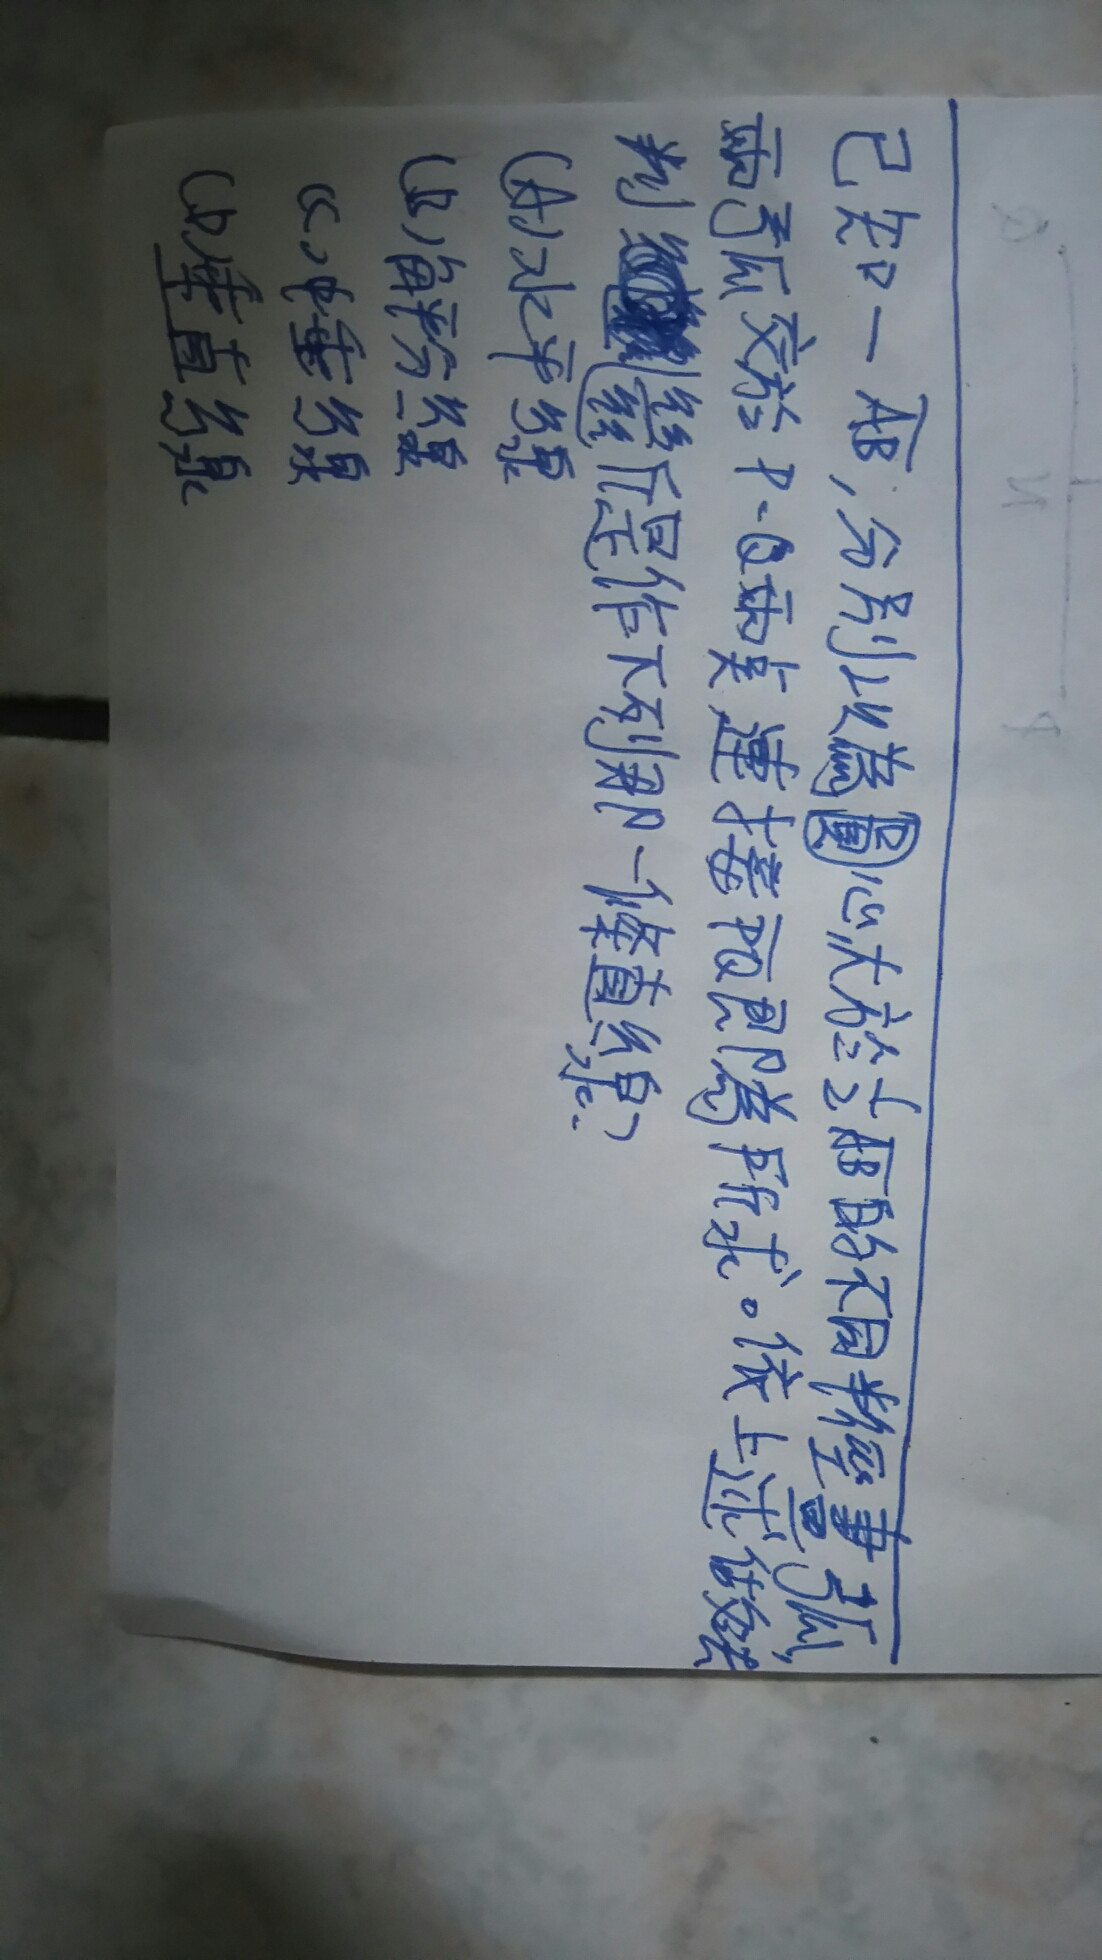 已知一AB，分別以為圓心大於½AB的不同半徑畫弧，
兩弧交於P、Q兩點，連接PQ即為所求。依上述做
判絲絲所是作下列那一條直線？
(A)水平線
(B)角平分線
(C)中垂線
(D)垂直線